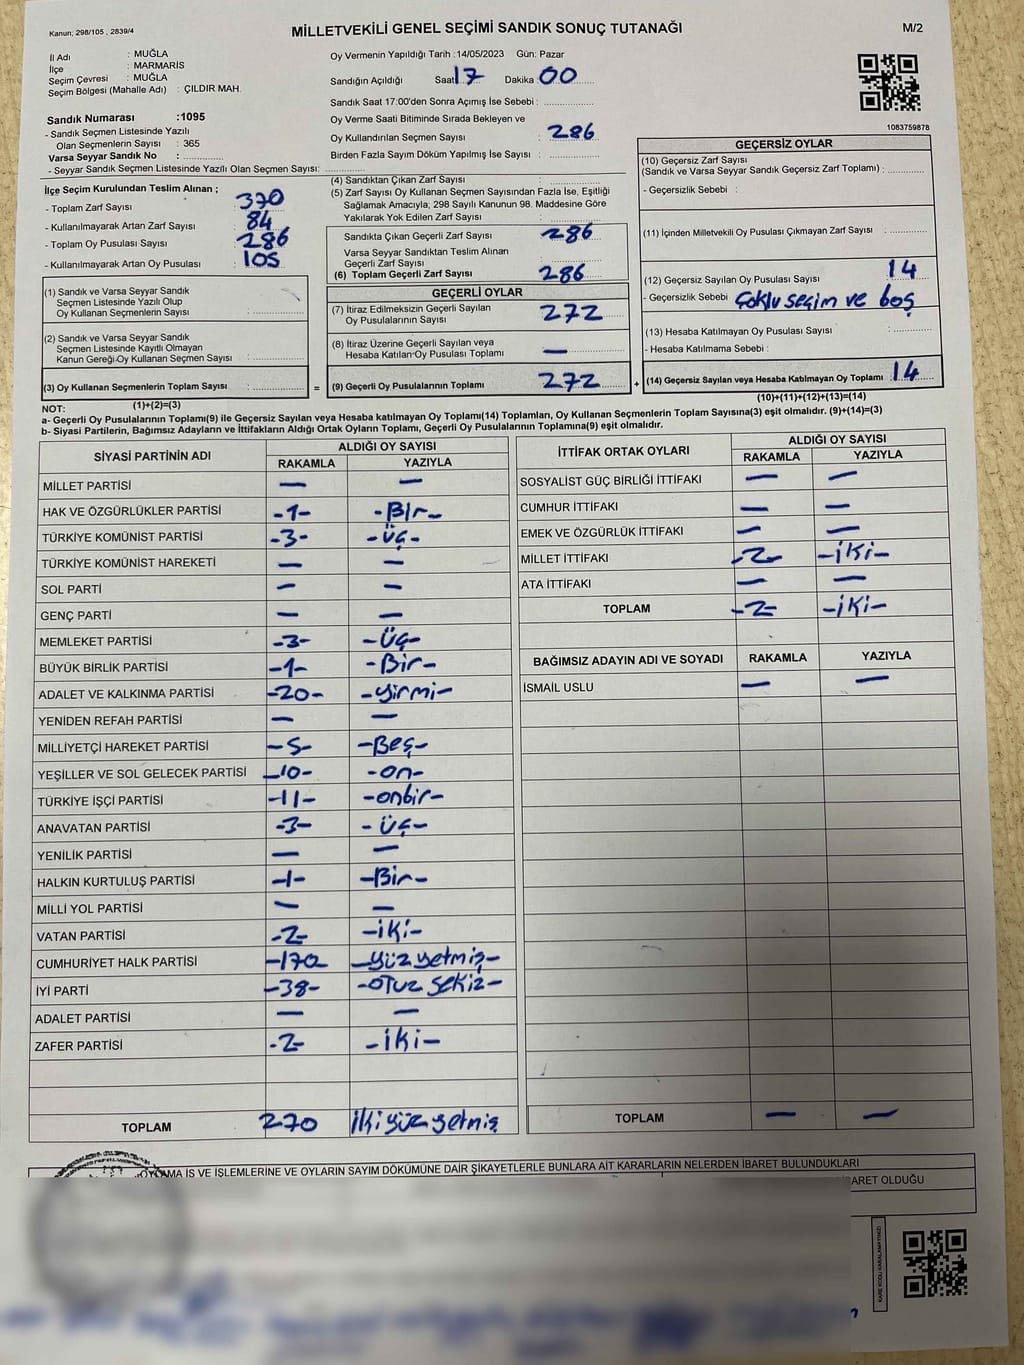 Kanun; 298/105 , 2839/4
MİLLETVEKİLİ GENEL SEÇİMİ SANDIK SONUÇ TUTANAĞI
M/2
İl Adı : MUĞLA
İlçe : MARMARİS
Seçim Çevresi : MUĞLA
Seçim Bölgesi (Mahalle Adı) : ÇILDIR MAH.
Sandık Numarası :1095
- Sandık Seçmen Listesinde Yazılı
Olan Seçmenlerin Sayısı : 365
Varsa Seyyar Sandık No :
- Seyyar Sandık Seçmen Listesinde Yazılı Olan Seçmen Sayısı:
Oy Vermenin Yapıldığı Tarih :14/05/2023 Gün: Pazar
Sandığın Açıldığı Saat 17 Dakika 00
Sandık Saat 17:00'den Sonra Açımış İse Sebebi :
Oy Verme Saati Bitiminde Sırada Bekleyen ve
Oy Kullandırılan Seçmen Sayısı : 286
Birden Fazla Sayım Döküm Yapılmış İse Sayısı :
1083759878
İlçe Seçim Kurulundan Teslim Alınan ;
- Toplam Zarf Sayısı : 370
- Kullanılmayarak Artan Zarf Sayısı : 84
- Toplam Oy Pusulası Sayısı : 286
- Kullanılmayarak Artan Oy Pusulası : 105
(1) Sandık ve Varsa Seyyar Sandık
Seçmen Listesinde Yazılı Olup
Oy Kullanan Seçmenlerin Sayısı :
(2) Sandık ve Varsa Seyyar Sandık
Seçmen Listesinde Kayıtlı Olmayan
Kanun Gereği Oy Kullanan Seçmen Sayısı :
(3) Oy Kullanan Seçmenlerin Toplam Sayısı :
(1)+(2)=(3)
(4) Sandıktan Çıkan Zarf Sayısı :
(5) Zarf Sayısı Oy Kullanan Seçmen Sayısından Fazla İse, Eşitliği
Sağlamak Amacıyla; 298 Sayılı Kanunun 98. Maddesine Göre
Yakılarak Yok Edilen Zarf Sayısı :
Sandıkta Çıkan Geçerli Zarf Sayısı : 286
Varsa Seyyar Sandıktan Teslim Alınan
Geçerli Zarf Sayısı :
(6) Toplam Geçerli Zarf Sayısı : 286
GEÇERLİ OYLAR
(7) İtiraz Edilmeksizin Geçerli Sayılan
Oy Pusulalarının Sayısı : 272
(8) İtiraz Üzerine Geçerli Sayılan veya
Hesaba Katılan Oy Pusulaları Toplamı : —
= (9) Geçerli Oy Pusulalarının Toplamı : 272 +
GEÇERSİZ OYLAR
(10) Geçersiz Zarf Sayısı
(Sandık ve Varsa Seyyar Sandık Geçersiz Zarf Toplamı) :
- Geçersizlik Sebebi :
(11) İçinden Milletvekili Oy Pusulası Çıkmayan Zarf Sayısı :
(12) Geçersiz Sayılan Oy Pusulası Sayısı : 14
- Geçersizlik Sebebi : Çoklu seçim ve boş
(13) Hesaba Katılmayan Oy Pusulası Sayısı :
- Hesaba Katılmama Sebebi :
(14) Geçersiz Sayılan veya Hesaba Katılmayan Oy Toplamı : 14
(10)+(11)+(12)+(13)=(14)
NOT:
a- Geçerli Oy Pusulaları Toplamı(9) ile Geçersiz Sayılan veya Hesaba katılmayan Oy Toplamı(14) Toplamları, Oy Kullanan Seçmenlerin Toplam Sayısına(3) eşit olmalıdır. (9)+(14)=(3)
b- Siyasi Partilerin, Bağımsız Adayların ve İttifakların Aldığı Ortak Oyların Toplamı, Geçerli Oy Pusulalarının Toplamına(9) eşit olmalıdır.
SİYASİ PARTİNİN ADI ALDIĞI OY SAYISI
RAKAMLA YAZIYLA
MİLLET PARTİSİ — —
HAK VE ÖZGÜRLÜKLER PARTİSİ -1- -Bir-
TÜRKİYE KOMÜNİST PARTİSİ -3- -Üç-
TÜRKİYE KOMÜNİST HAREKETİ — —
SOL PARTİ — —
GENÇ PARTİ — —
MEMLEKET PARTİSİ -3- -Üç-
BÜYÜK BİRLİK PARTİSİ -1- -Bir-
ADALET VE KALKINMA PARTİSİ -20- -yirmi-
YENİDEN REFAH PARTİSİ — —
MİLLİYETÇİ HAREKET PARTİSİ -5- -Beş-
YEŞİLLER VE SOL GELECEK PARTİSİ -10- -on-
TÜRKİYE İŞÇİ PARTİSİ -11- -onbir-
ANAVATAN PARTİSİ -3- -Üç-
YENİLİK PARTİSİ — —
HALKIN KURTULUŞ PARTİSİ -1- -Bir-
MİLLİ YOL PARTİSİ — —
VATAN PARTİSİ -2- -iki-
CUMHURİYET HALK PARTİSİ -170 -yüz yetmiş-
İYİ PARTİ -38- -otuz sekiz-
ADALET PARTİSİ — —
ZAFER PARTİSİ -2- -iki-
TOPLAM 270 ikiyüz yetmiş
İTTİFAK ORTAK OYLARI ALDIĞI OY SAYISI
RAKAMLA YAZIYLA
SOSYALİST GÜÇ BİRLİĞİ İTTİFAKI — —
CUMHUR İTTİFAKI — —
EMEK VE ÖZGÜRLÜK İTTİFAKI — —
MİLLET İTTİFAKI -2- -iki-
ATA İTTİFAKI — —
TOPLAM -2- -iki-
BAĞIMSIZ ADAYIN ADI VE SOYADI RAKAMLA YAZIYLA
İSMAİL USLU — —
TOPLAM — —
OYLAMA İŞ VE İŞLEMLERİNE VE OYLARIN SAYIM DÖKÜMÜNE DAİR ŞİKAYETLERLE BUNLARA AİT KARARLARIN NELERDEN İBARET BULUNDUKLARI
İBARET OLDUĞU